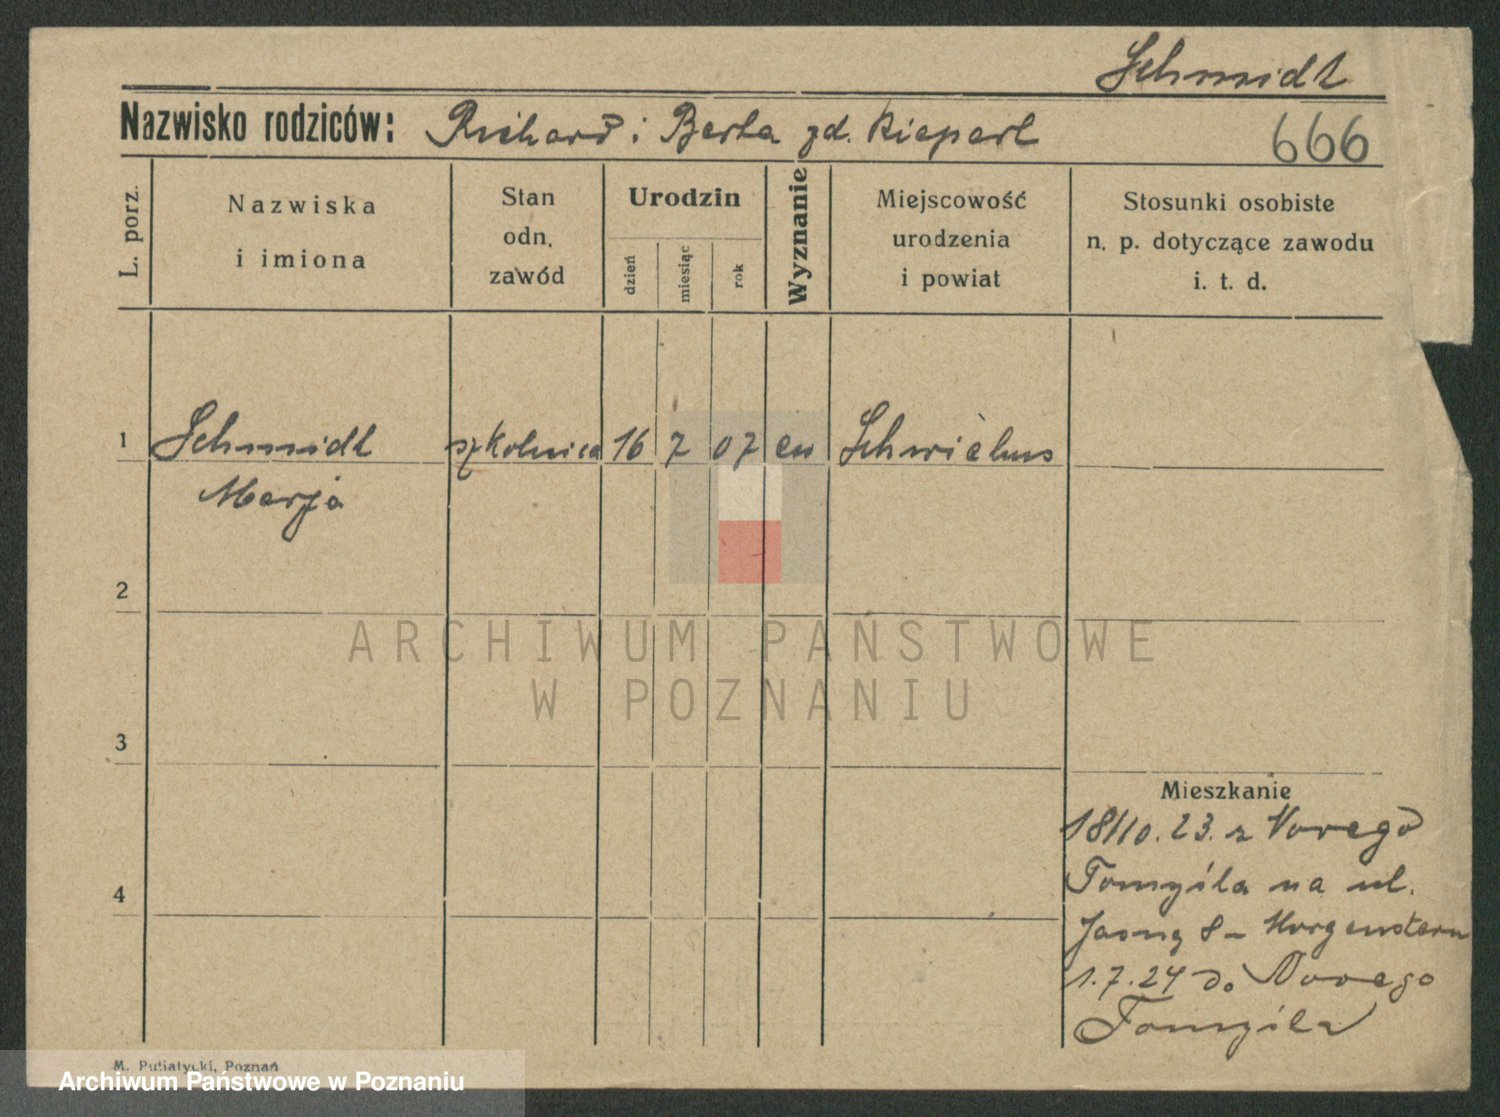 Schmidt
Nazwisko rodziców: Richard i Berta zd. Kiepert 666
L. porz.
Nazwiska
i imiona
Stan
odn.
zawód
Urodzin
dzień
miesiąc
rok
Wyznanie
Miejscowość
urodzenia
i powiat
Stosunki osobiste
n. p. dotyczące zawodu
i. t. d.
1 Schmidt szkolnica 16 7 07 ew Schwiebus
Marja
2
ARCHIWUM PAŃSTWOWE
W POZNANIU
3
Mieszkanie
18/10.23. z Nowego
4
Tomyśla na ul.
Jasną 8 - Morgenstern
1.7.24 do Nowego
Tomyśla
M. Putiatycki, Poznań
Archiwum Państwowe w Poznaniu